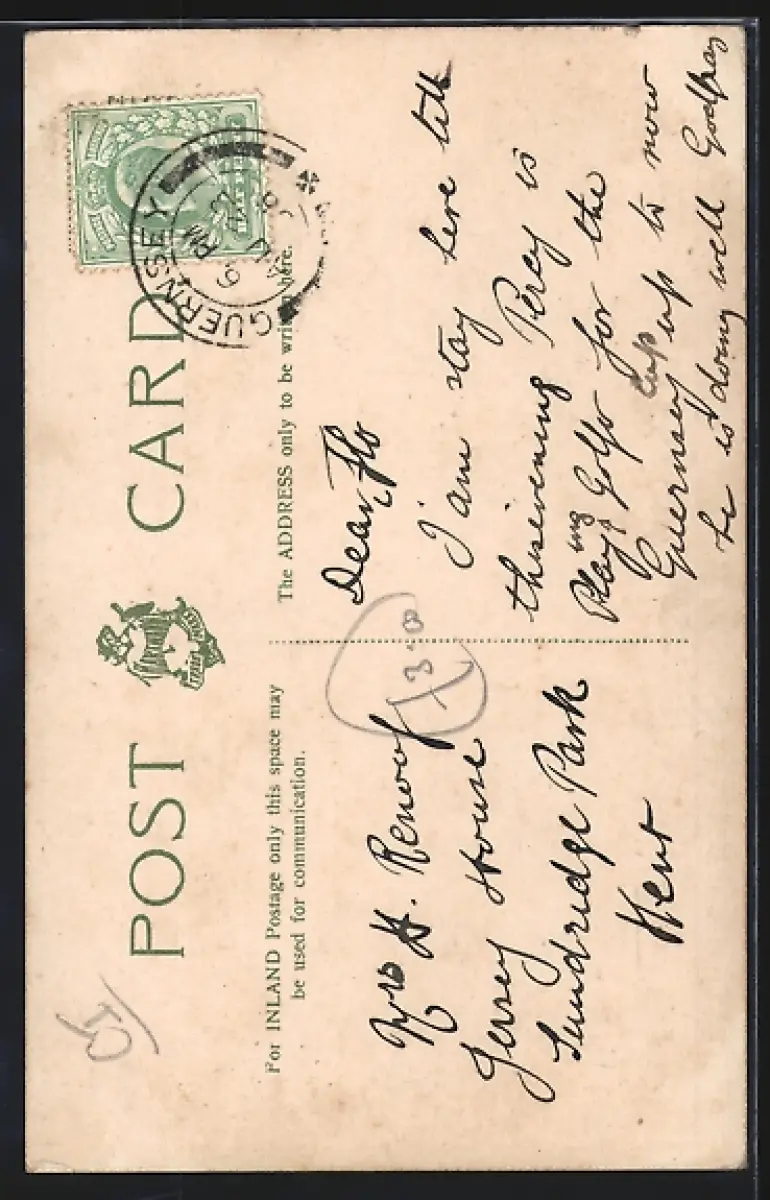 POST CARD
For INLAND Postage only this space may
be used for communication.
The ADDRESS only to be written here.
GUERNSEY
6 PM
Mrs H. Renouf
Jersey House
Sundridge Park
Kent
Dear Flo
I am stay here till
thisevening Percy is
Playing Golf for the
Guernsey Cup up to now
he is doing well Godfray